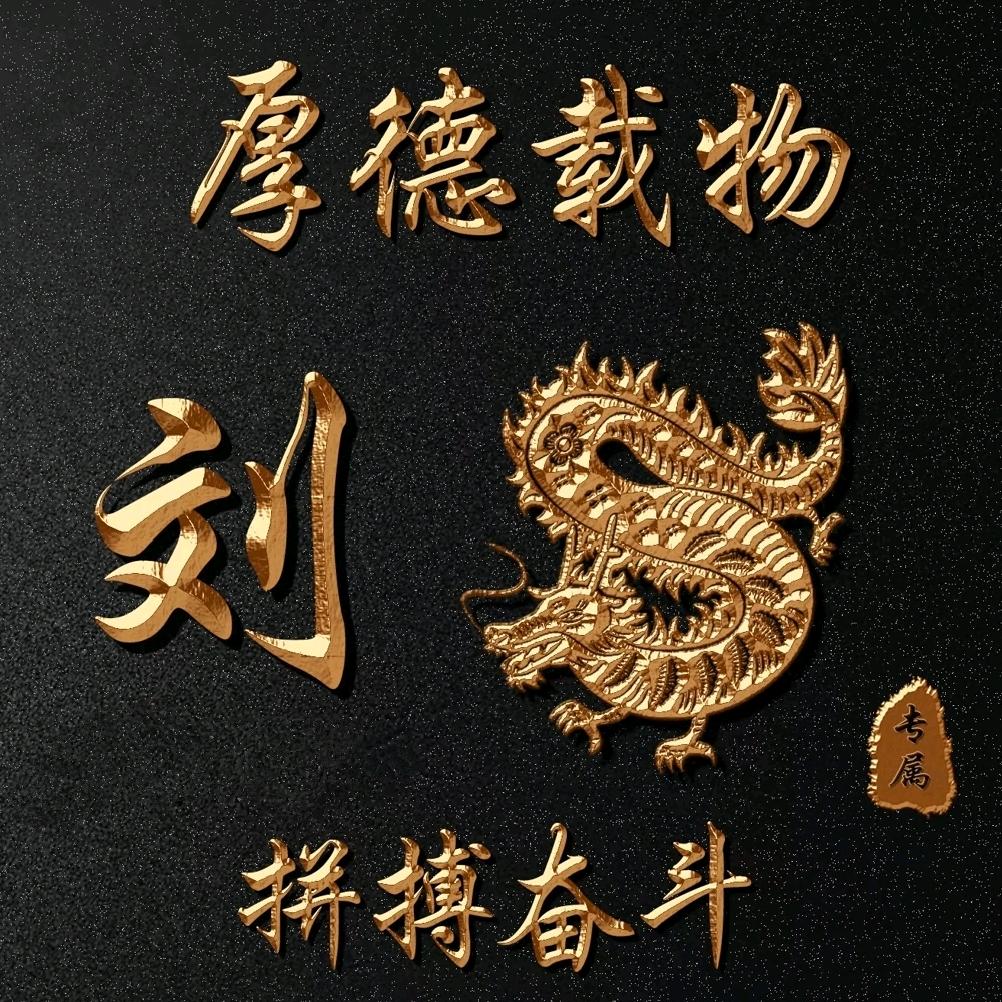 厚德载物
刘
专属
拼搏奋斗